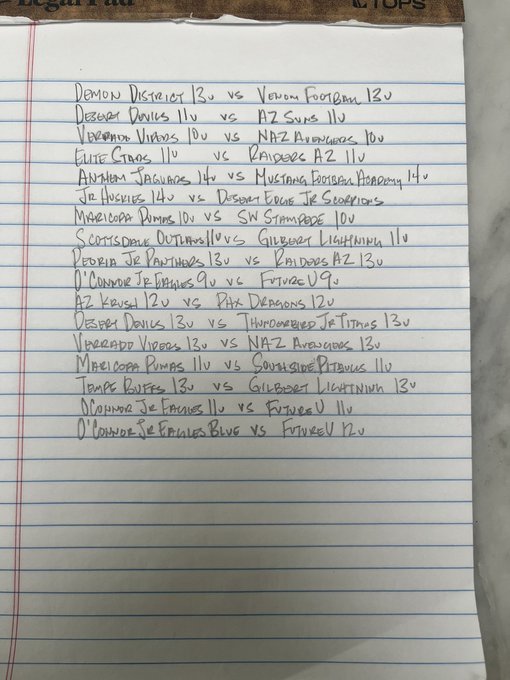 Legal Pad TOPS
DEMON DISTRICT 13U VS VENOM FOOTBALL 13U
DESERT DEVILS 11U VS AZ SUNS 11U
VERRADO VIPERS 10U VS NAZ AVENGERS 10U
ELITE STARS 11U VS RAIDERS AZ 11U
ANTHEM JAGUARS 14U VS MUSTANG FOOTBALL ACADEMY 14U
JR HUSKIES 14U VS DESERT EDGE JR SCORPIONS
MARICOPA PUMAS 10U VS SW STAMPEDE 10U
SCOTTSDALE OUTLAWS 11U VS GILBERT LIGHTNING 11U
PEORIA JR PANTHERS 13U VS RAIDERS AZ 13U
O'CONNOR JR EAGLES 9U VS FUTURE U 9U
AZ KRUSH 12U VS PHX DRAGONS 12U
DESERT DEVILS 13U VS THUNDERBIRD JR TITANS 13U
VERRADO VIPERS 13U VS NAZ AVENGERS 13U
MARICOPA PUMAS 11U VS SOUTHSIDE PITBULLS 11U
TEMPE BUFFS 13U VS GILBERT LIGHTNING 13U
O'CONNOR JR EAGLES 11U VS FUTURE U 11U
O'CONNOR JR EAGLES BLUE VS FUTURE U 12U